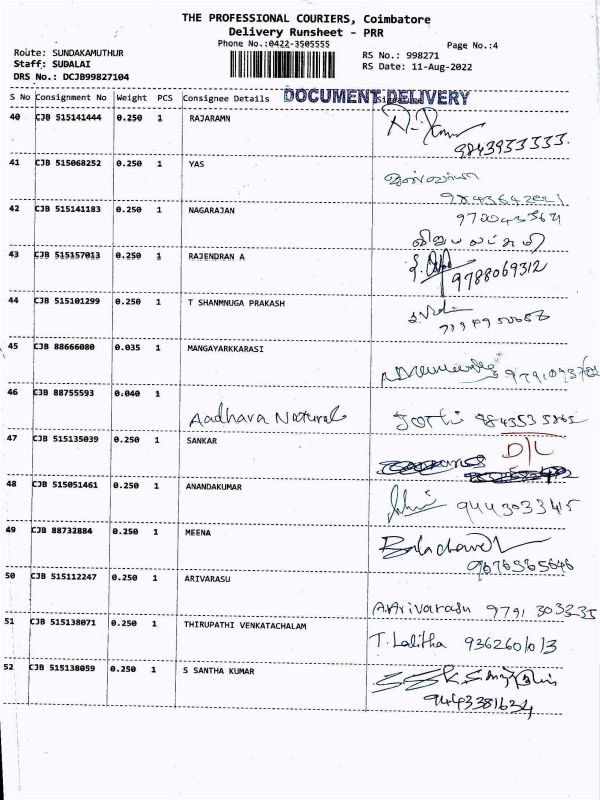 THE PROFESSIONAL COURIERS, Coimbatore
Delivery Runsheet - PRR
Phone No.:0422-3505555
Page No.:4
Route: SUNDAKAMUTHUR
RS No.: 998271
Staff: SUDALAI
RS Date: 11-Aug-2022
DRS No.: DCJB99827104
S No Consignment No Weight PCS Consignee Details DOCUMENT DELIVERY
40 CJB 515141444 0.250 1 RAJARAMN
9843933333.
41 CJB 515068252 0.250 1 YAS
42 CJB 515141183 0.250 1 NAGARAJAN
விஜயலட்சுமி
43 CJB 515157013 0.250 1 RAJENDRAN A
9788069312
44 CJB 515101299 0.250 1 T SHANMNUGA PRAKASH
45 CJB 88666080 0.035 1 MANGAYARKKARASI
46 CJB 88755593 0.040 1
Aadhava Natural Jothi
47 CJB 515135039 0.250 1 SANKAR D/L
48 CJB 515051461 0.250 1 ANANDAKUMAR
9443033415
49 CJB 88732884 0.250 1 MEENA
9676565646
50 CJB 515112247 0.250 1 ARIVARASU
A.Arivarasu 9791 303235
51 CJB 515138071 0.250 1 THIRUPATHI VENKATACHALAM
T. Lalitha 9362601013
52 CJB 515138059 0.250 1 S SANTHA KUMAR
9443381634